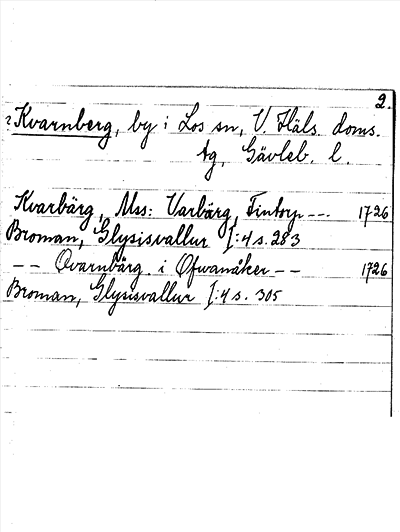 2.
? Kvarnberg, by i Los sn, V. Häls. doms.
tg, Gävleb. l.
Kvarbärg, Mss: Varbärg, Fintorp --- 1726
Broman, Glysisvallur I:4 s. 283
-- Qvarnbärg i Ofwanåker -- 1726
Broman, Glysisvallur I:4 s. 305